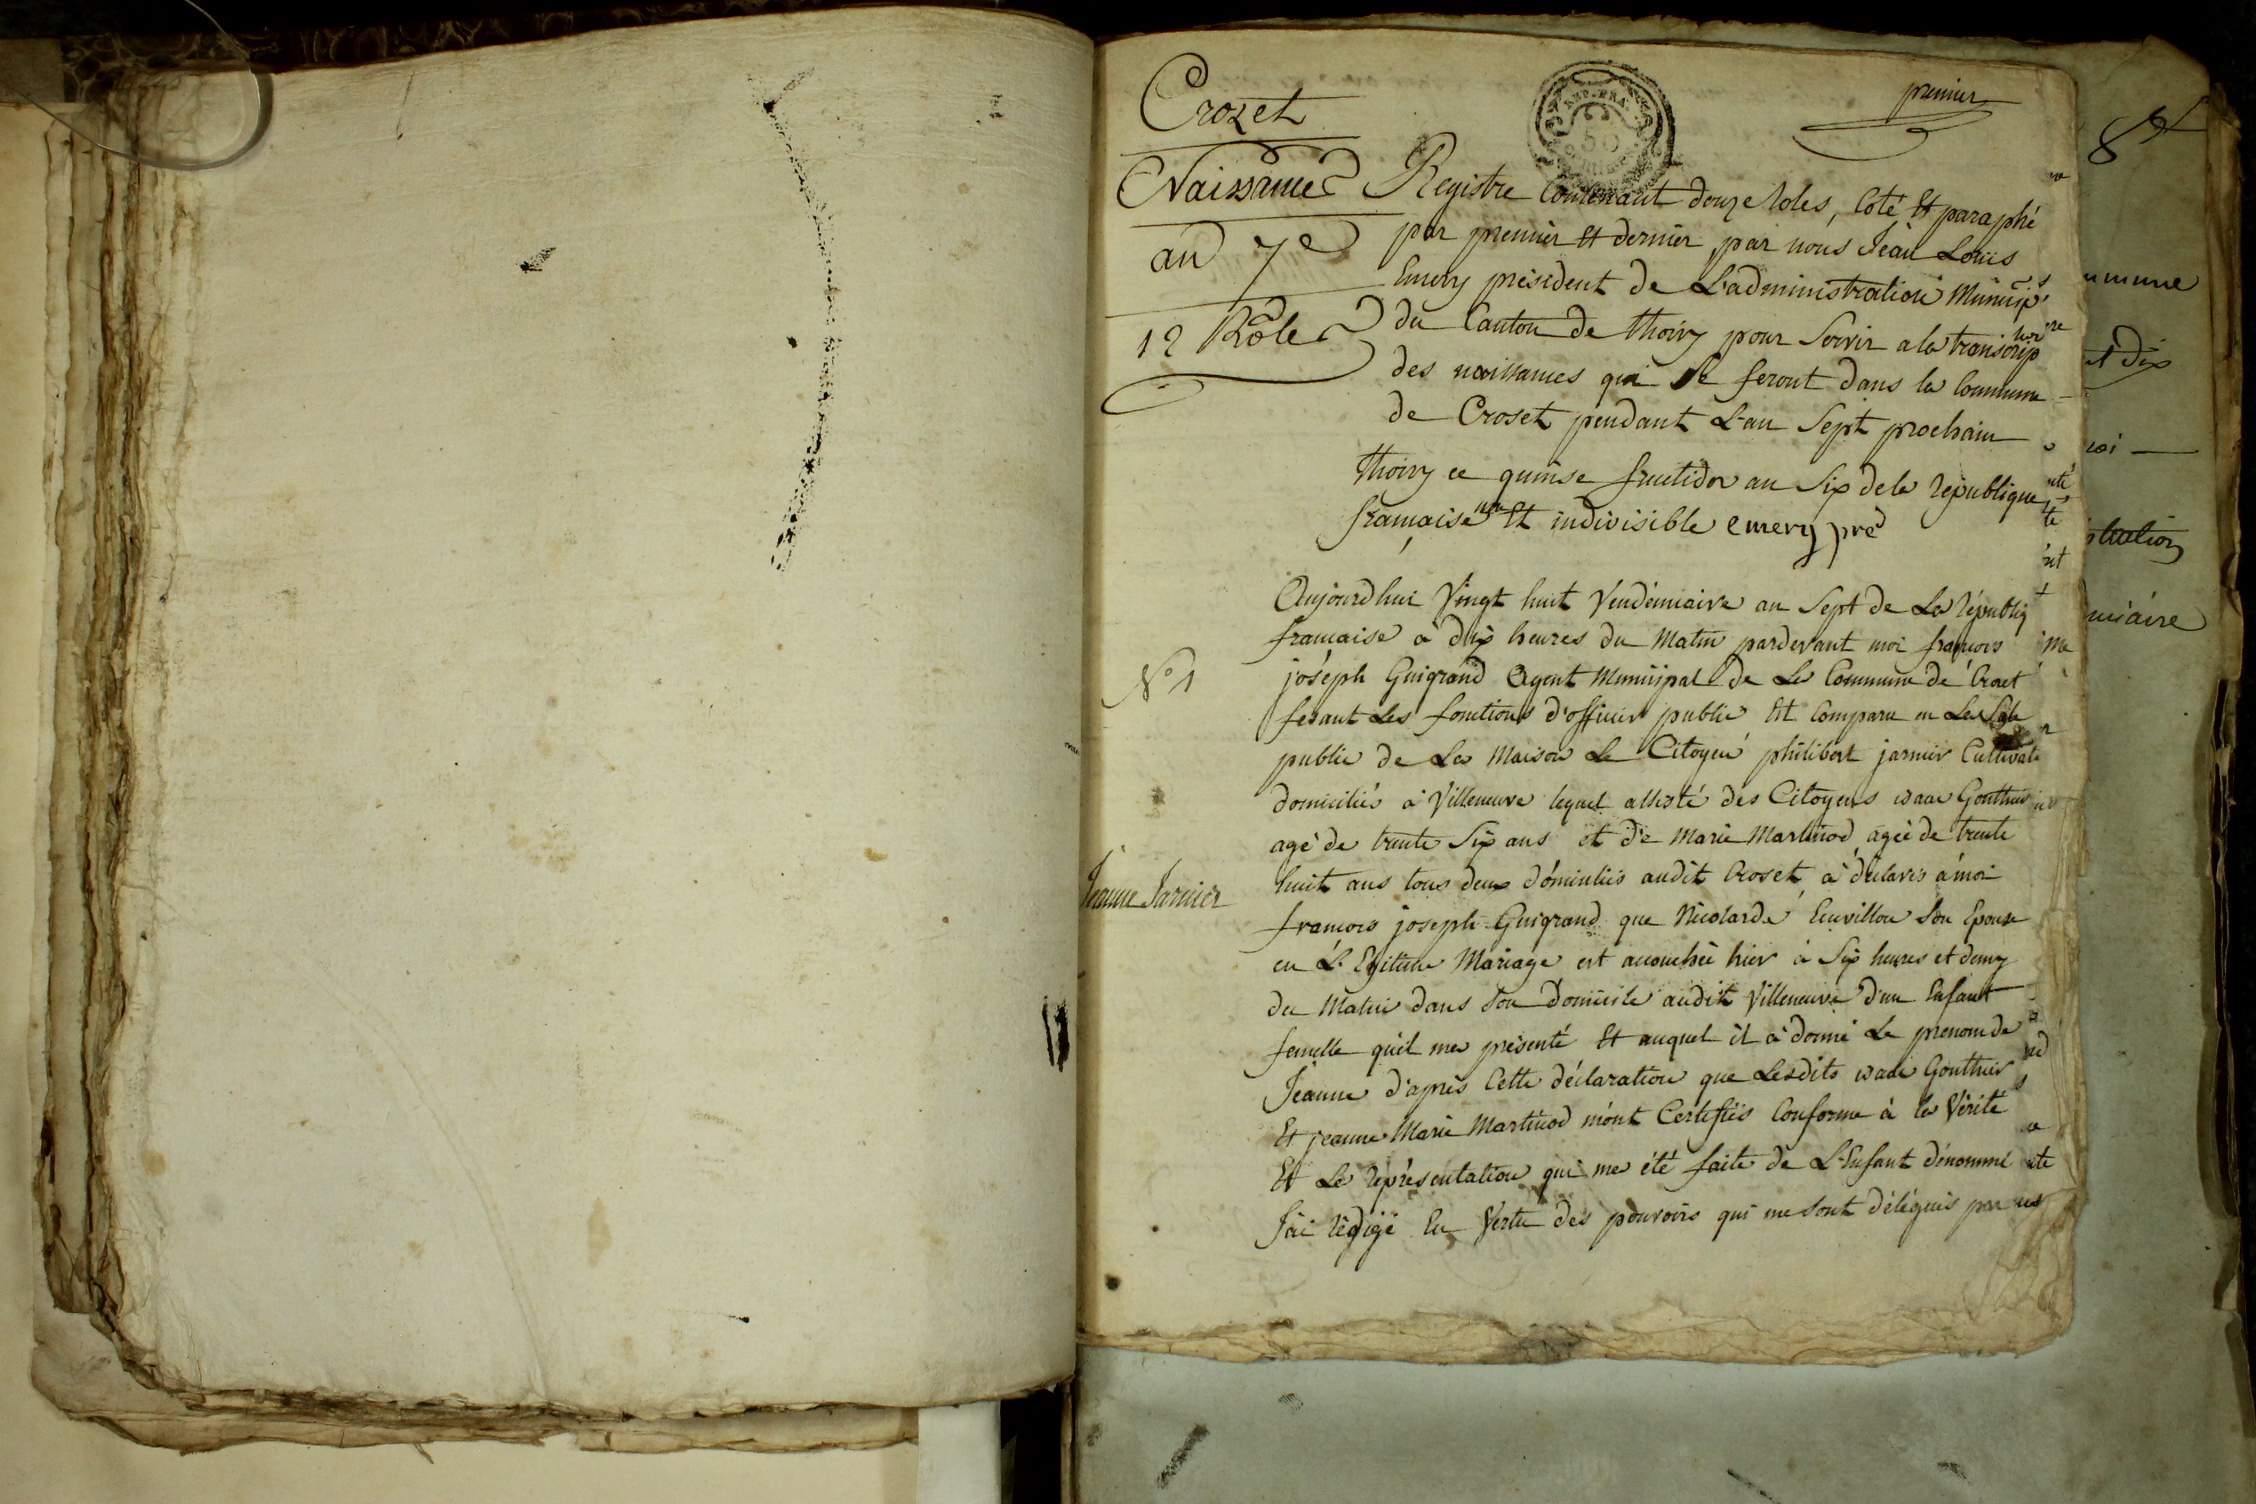 Crozet
premier
REP. FRA.
50
Naissance
an 7e
12 Rôle
Registre Contenant douze Roles, Coté Et paraphé
par premier Et dernier par nous Jean Louis
Emery président de L'administration Municip.
du Canton de Thoiry pour Servir a la transcrip
des naissances qui se feront dans la Commune
de Croset pendant L'an Sept prochain
Thoiry ce quinse fructidor an Six de la république
française une Et indivisible emery pre
N° 1
Jeanne Jarnier
Aujourdhui Vingt huit Vendémiaire an Sept de La républiq
francaise à dix heures du Matin pardevant moi francois
joseph Guigrand Agent Municipal de La Commune de Crozet
fesant Les fonctions d'officier public Est Comparu en La Sale
public de La Maison Le Citoyen philibert jarnier Cultivat
domiciliés à Villeneuve lequel assisté des Citoyens isaac Gonthier
agé de trente Six ans et de Marie Martinod agée de trente
huit ans tous deux domiciliés audit Croset à déclarés à moi
francois joseph Guigrand que Nicolarde Son Epouse
en L. Egitime Mariage est acouchée hier à Six heures et demy
du Matin dans Son Domicile audit Villeneuve d'un Enfant
femelle quil ma présenté Et auquel il à donné Le prenom de
Jeanne d'après Cette déclaration que Lesdits isaac Gonthier
Et jeanne Marie Martinod mont Certifiés Conforme à la Vérité
Et La représentation qui ma été faite de L'Enfant dénommé
Jai rédigé En Vertu des pouvoirs qui me Sont délégués par